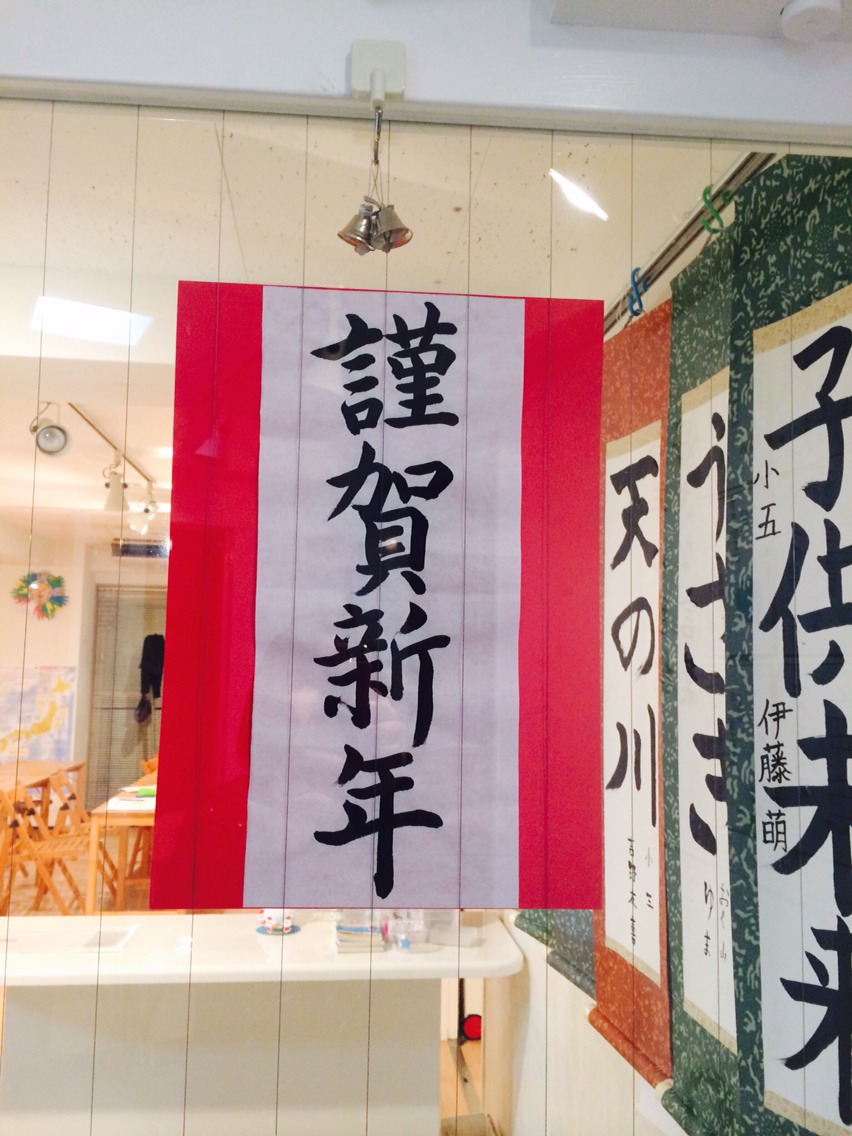 謹賀新年
子供未来
小五
伊藤萌
うさぎ
おく山
ゆま
天の川
小三